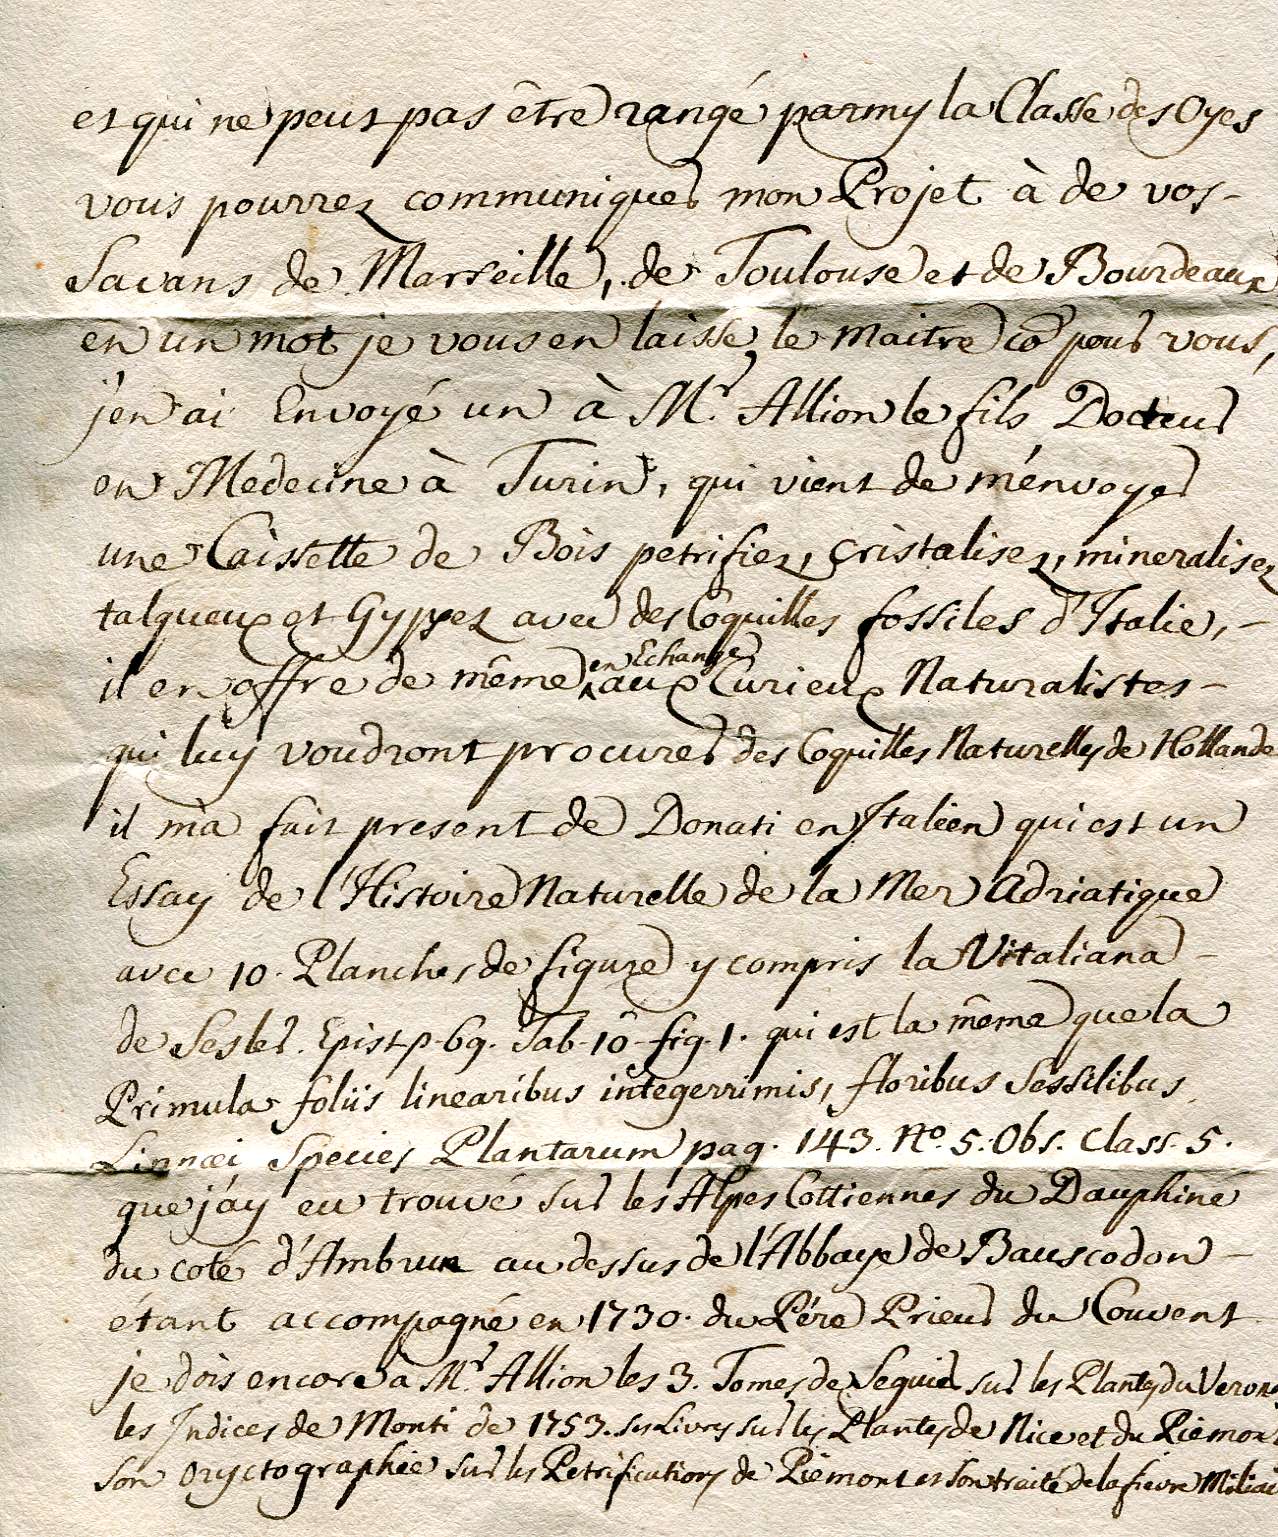 et qui ne peut pas être rangé parmy la Classe des Oyes
vous pourrez communiquer mon Projet à de vos-
Savans de Marseille, de Toulouse et de Bourdeaux
en un mot je vous en laisse le maitre cõ pour vous,
j'en ai Envoyé un à Mr. Allion le fils Docteur
en Medecine à Turin, qui vient de m'énvoyer
une Caissette de Bois petrifiez, Cristalisez, mineralisez
talqueux et Gypsez avec des Coquilles fossiles d'Italie,-
il en offre de même en Echange aux Curieux Naturalistes-
qui luy voudront procurer des Coquilles Naturelles de Hollande
il m'a fait present de Donati en Italien qui est un
Essay de l'Histoire Naturelle de la Mer Adriatique
avec 10. Planches de figure y compris la Vitaliana-
de Sesler. Epist. p. 69. Tab. 10 fig. 1. qui est la même que la
Primula foliis linearibus integerrimis, floribus Sessilibus
Linnæi Species Plantarum pag. 143. No. 5. Obs. Class. 5.
que j'ay eu trouvé sur les Alpes Cottiennes du Dauphiné
du coté d'Ambrun au dessus de l'Abbaye de Bauscodon-
étant accompagné en 1730. du Pére Prieur du Couvent
je dois encore à Mr. Allion les 3. Tomes de Seguier sur les Plantes du Veron
les Indices de Monti de 1753. ses Livres sur les Plantes de Nice et du Piemont
son Oryctographie sur les Petrifications de Piémont et son traité de la fievre Miliai